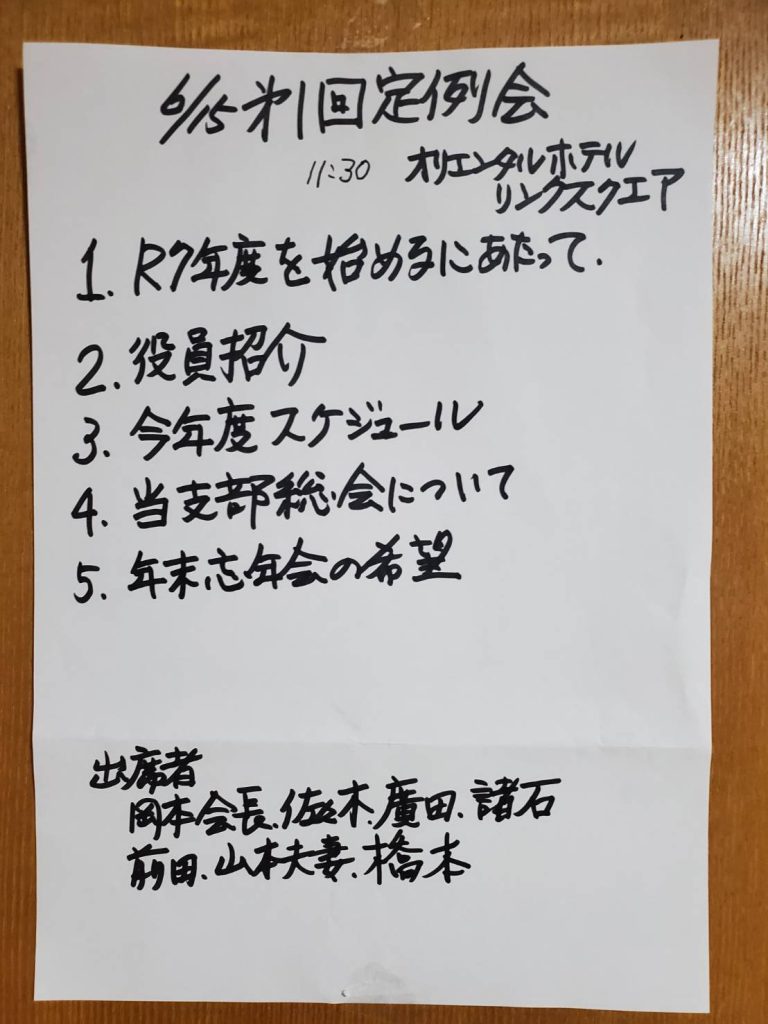 6/15 第1回定例会
11:30 オリエンタルホテル
リンクスクエア
1. R7年度を始めるにあたって.
2. 役員招介
3. 今年度スケジュール
4. 当支部総会について
5. 年末忘年会の希望
出席者
岡本会長、佐々木、廣田、諸石
前田、山本夫妻、橋本